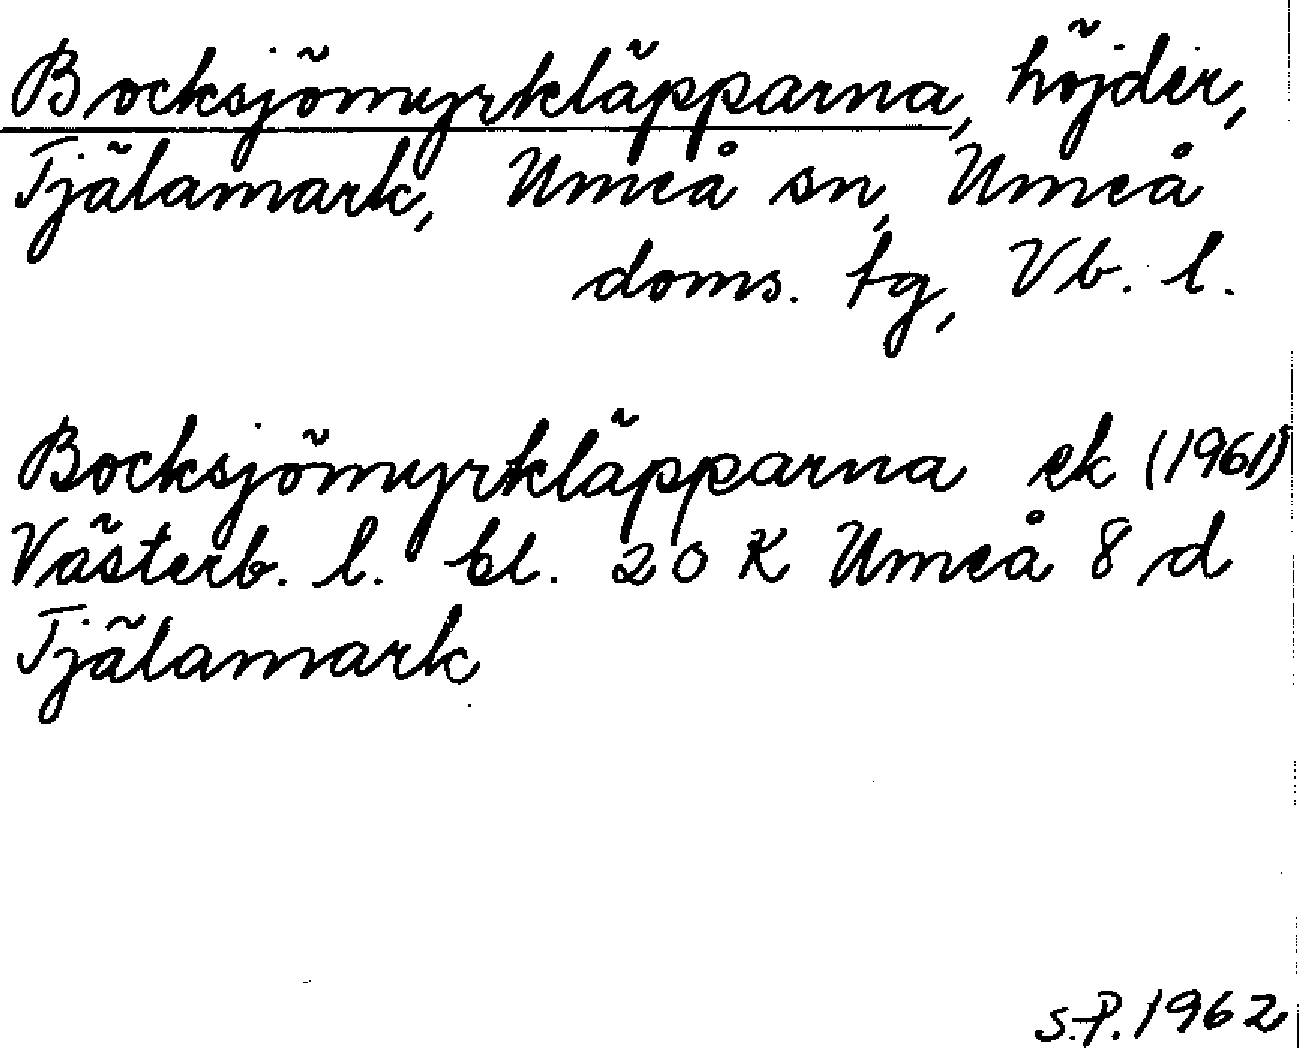 Bocksjömyrkläpparna, höjder,
Tjälamark, Umeå sn, Umeå
doms. tg, Vb. l.
Bocksjömyrkläpparna ek (1961)
Västerb. l. bl. 20 K Umeå 8 d
Tjälamark
S.P. 1962